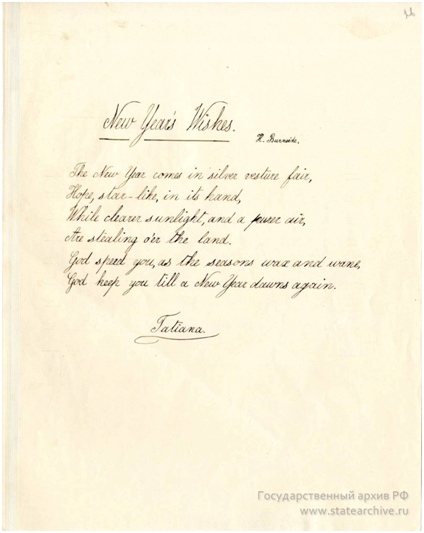 New Year's Wishes.
H. Burnside.
The New Year comes in silver vesture fair,
Hope, star-like, in its hand,
While clearer sunlight, and a purer air,
Are stealing o'er the land.
God speed you, as the seasons wax and wane,
God keep you till a New Year dawns again.
Tatiana.
Государственный архив РФ
www.statearchive.ru